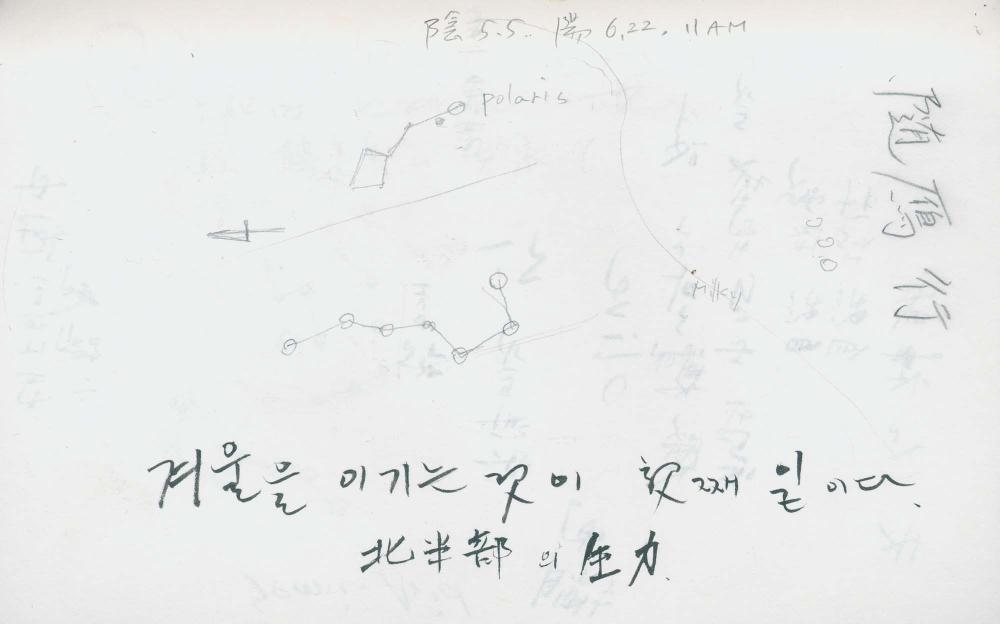 陰 5.5. 陽 6.22. 11AM
polaris
隨鴈行
Milky
겨울을 이기는 것이 첫째 일이다.
北半部의 生力.